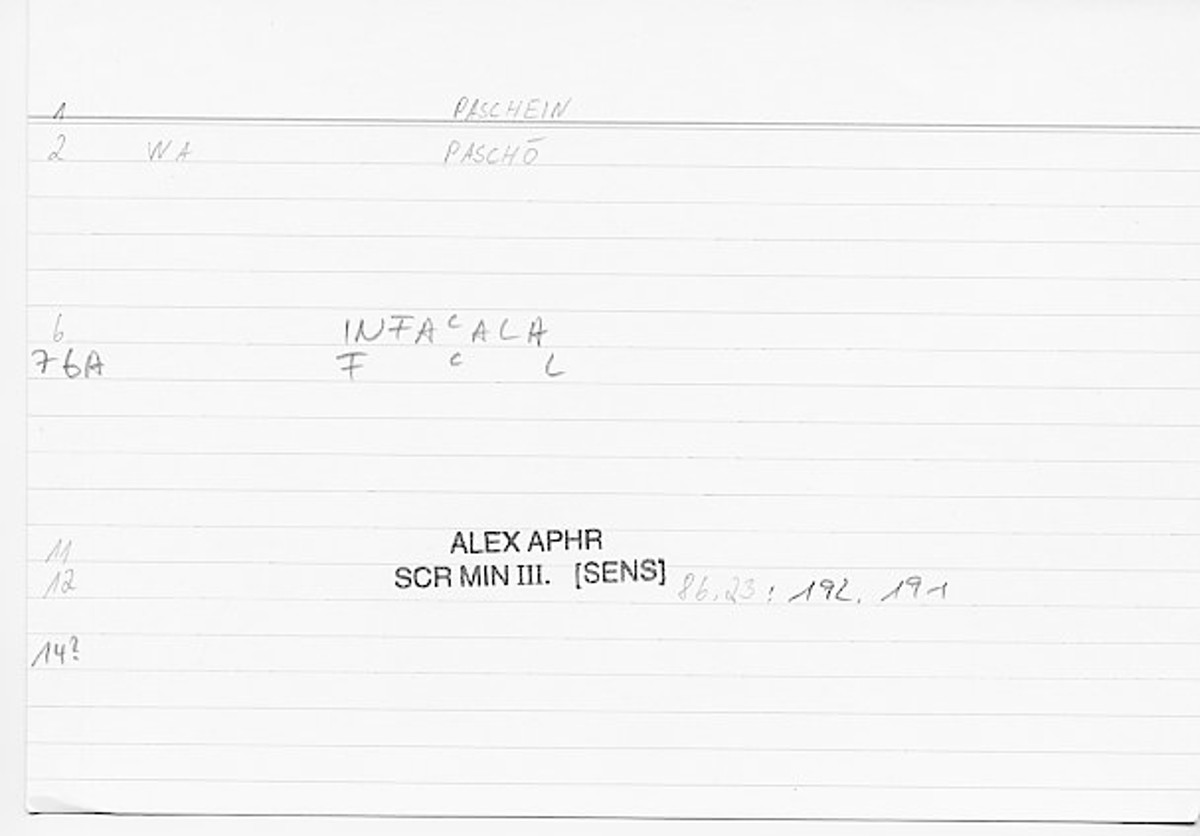 1 PASCHEIN
2 WA PASCHŌ
6 INFACALA
76A F C L
11 ALEX APHR
12 SCR MIN III. [SENS] 86.23: 192. 19-1
14?